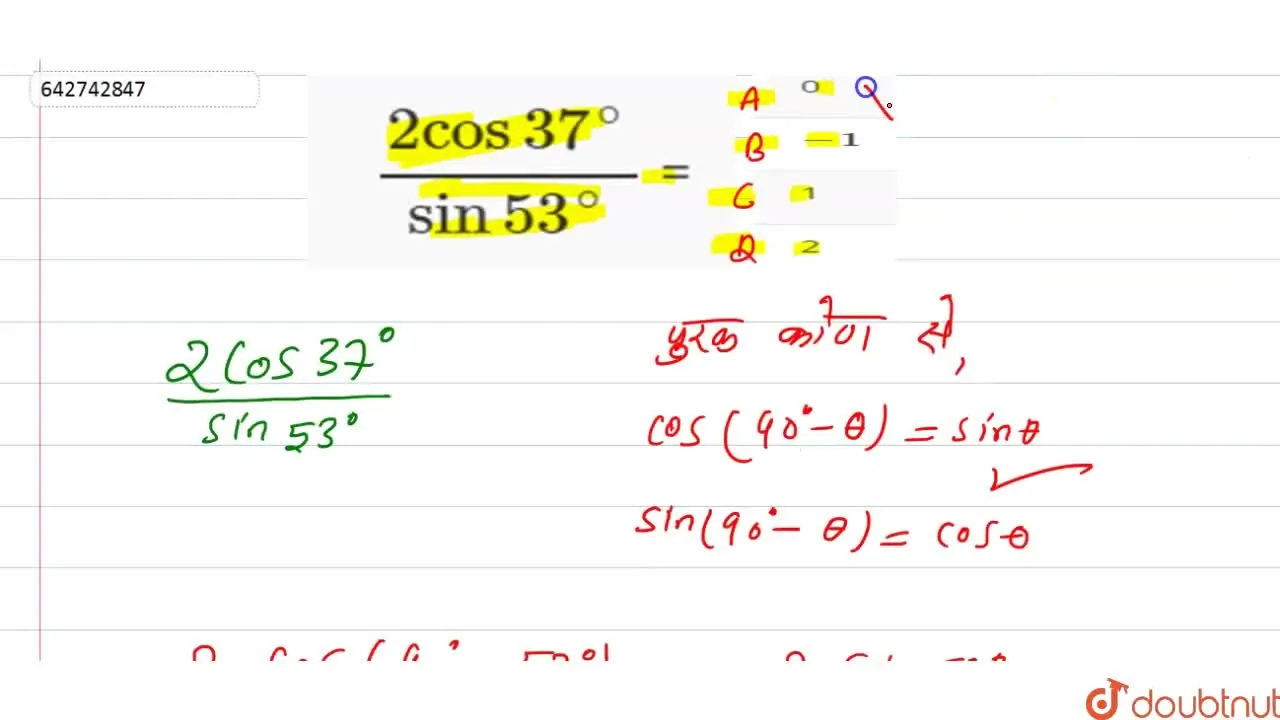 642742847
2cos 37°
sin 53°
=
A 0
B −1
C 1
D 2
2 cos 37°
sin 53°
पुरक कोण से,
cos(90°−θ) = sinθ
sin(90°−θ) = cosθ
doubtnut